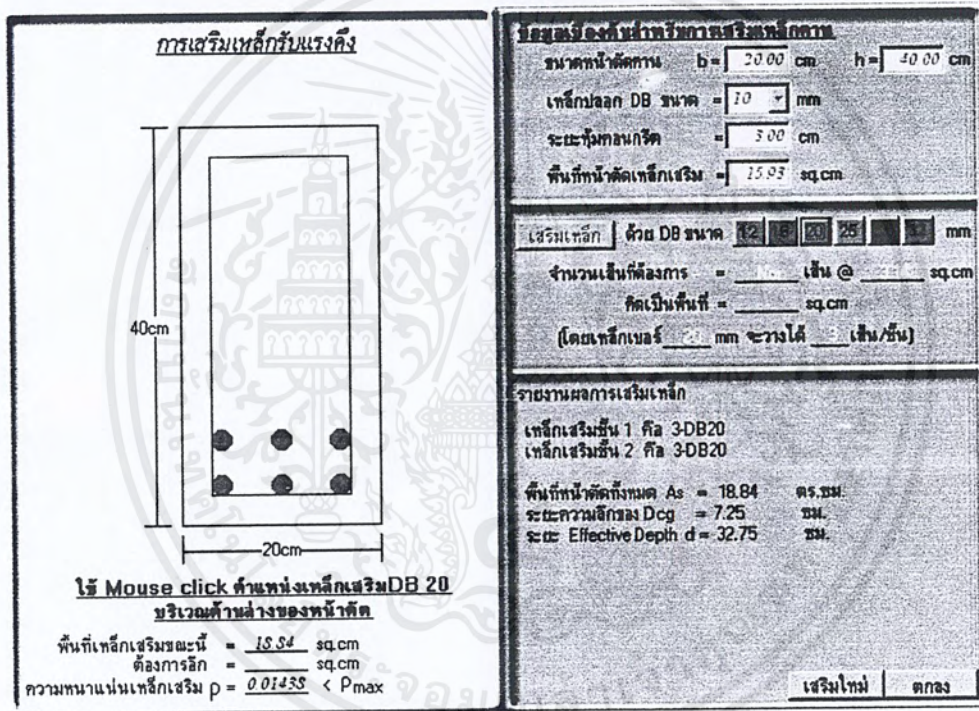 การเสริมเหล็กรับแรงดึง
40cm
20cm
ใช้ Mouse click ตำแหน่งเหล็กเสริมDB 20
บริเวณด้านล่างของหน้าตัด
พื้นที่เหล็กเสริมขณะนี้ = 18.84 sq.cm
ต้องการอีก = sq.cm
ความหนาแน่นเหล็กเสริม ρ = 0.01438 < Pmax
ข้อมูลเบื้องต้นสำหรับการเสริมเหล็กคาน
ขนาดหน้าตัดคาน b = 20.00 cm h = 40.00 cm
เหล็กปลอก DB ขนาด = 10 mm
ระยะหุ้มคอนกรีต = 3.00 cm
พื้นที่หน้าตัดเหล็กเสริม = 15.93 sq.cm
เสริมเหล็ก ด้วย DB ขนาด 12 20 25 mm
จำนวนเส้นที่ต้องการ = เส้น @ sq.cm
คิดเป็นพื้นที่ = sq.cm
(โดยเหล็กเบอร์ mm จะวางได้ เส้น/ชั้น)
รายงานผลการเสริมเหล็ก
เหล็กเสริมชั้น 1 คือ 3-DB20
เหล็กเสริมชั้น 2 คือ 3-DB20
พื้นที่หน้าตัดทั้งหมด As = 18.84 ตร.ซม.
ระยะความลึกของ Dcg = 7.25 ซม.
ระยะ Effective Depth d = 32.75 ซม.
เสริมใหม่ ตกลง